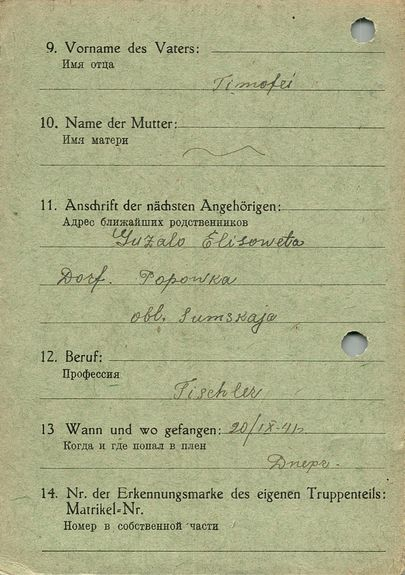 9. Vorname des Vaters:
Имя отца
Timofei
10. Name der Mutter:
Имя матери
11. Anschrift der nächsten Angehörigen:
Адрес ближайших родственников
Guzalo Elisoweta
Dorf. Popowka
obl. Sumskaja
12. Beruf:
Профессия
Tischler
13 Wann und wo gefangen: 20/IX-41
Когда и где попал в плен
Dnepr.
14. Nr. der Erkennungsmarke des eigenen Truppenteils:
Matrikel=Nr.
Номер в собственной части